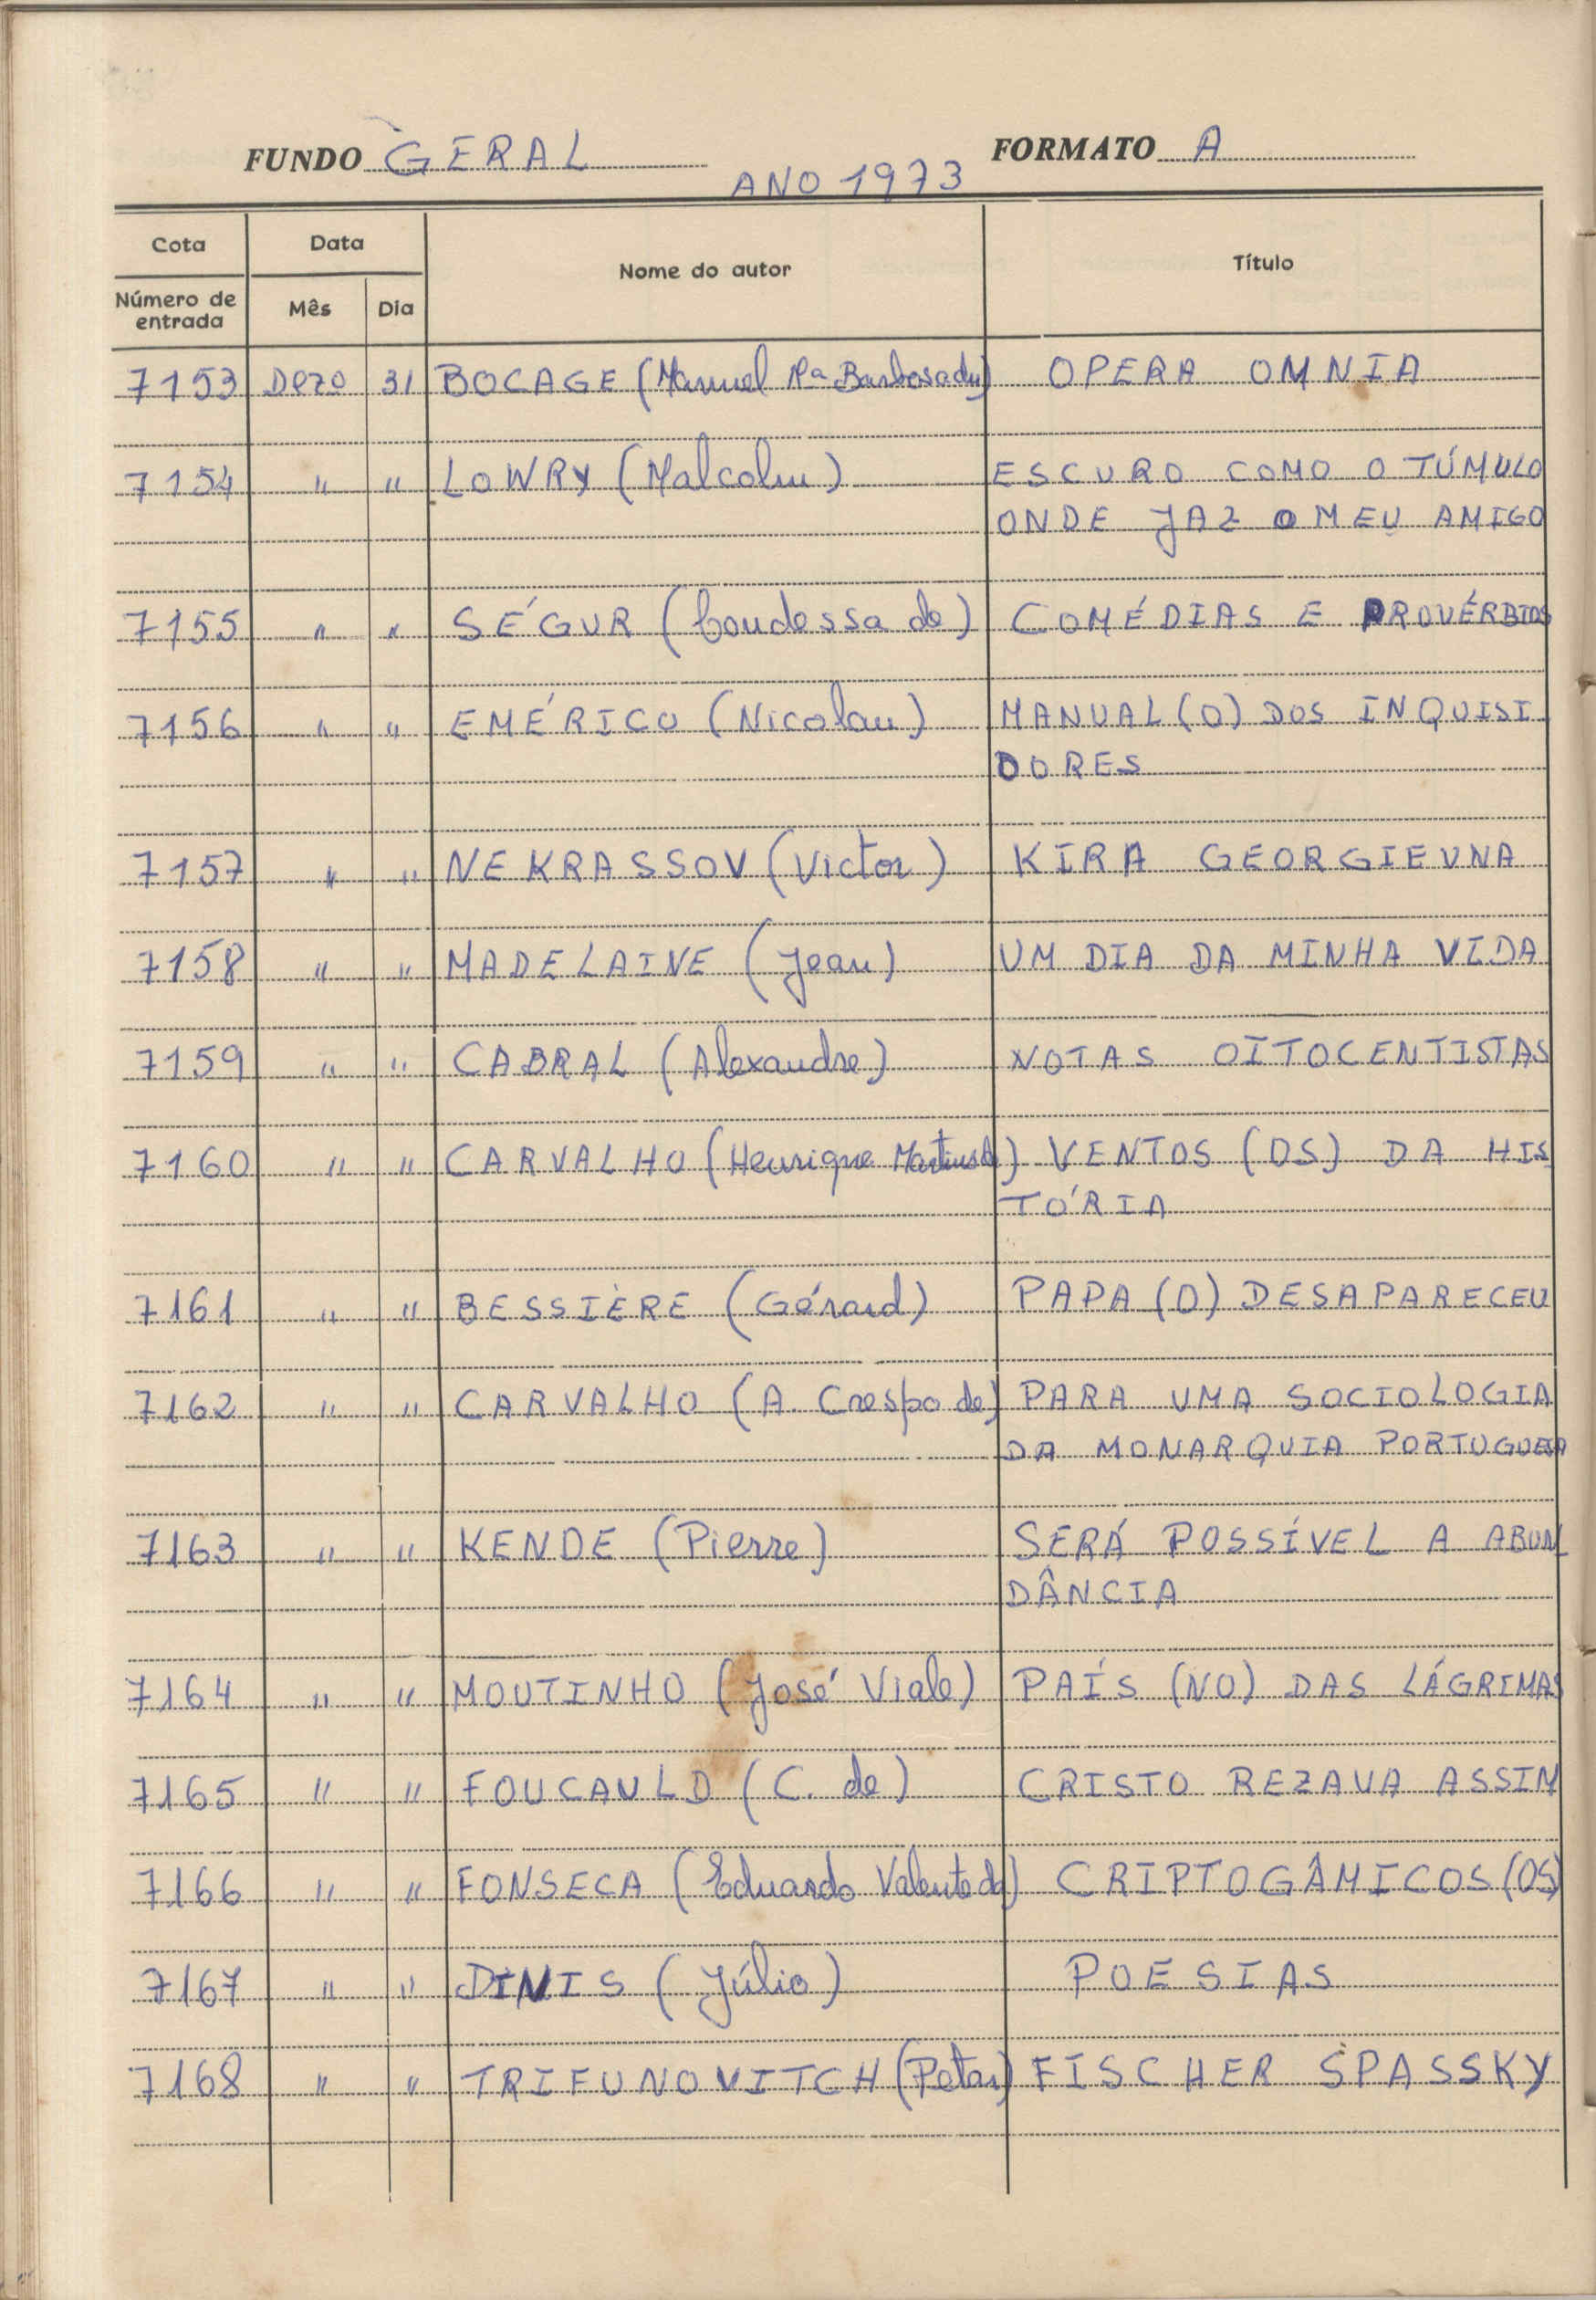 FUNDO GERAL FORMATO A
ANO 1973
Cota Data Nome do autor Título
Número de entrada Mês Dia
7153 Dezo 31 BOCAGE (Manuel Mª Barbosa du) OPERA OMNIA
7154 " " LOWRY (Malcolm) ESCURO COMO O TÚMULO
ONDE JAZ O MEU AMIGO
7155 " " SÉGUR (Condessa de) COMÉDIAS E PROVÉRBIOS
7156 " " EMÉRICO (Nicolau) MANUAL (O) DOS INQUISI
DORES
7157 " " NEKRASSOV (Victor) KIRA GEORGIEVNA
7158 " " MADELAINE (Jean) UM DIA DA MINHA VIDA
7159 " " CABRAL (Alexandre) NOTAS OITOCENTISTAS
7160 " " CARVALHO (Henrique Martins de) VENTOS (OS) DA HIS
TÓRIA
7161 " " BESSIÈRE (Gérard) PAPA (O) DESAPARECEU
7162 " " CARVALHO (A. Crespo de) PARA UMA SOCIOLOGIA
DA MONARQUIA PORTUGUESA
7163 " " KENDE (Pierre) SERÁ POSSÍVEL A ABUN
DÂNCIA
7164 " " MOUTINHO (José Viale) PAÍS (NO) DAS LÁGRIMAS
7165 " " FOUCAULD (C. de) CRISTO REZAVA ASSIM
7166 " " FONSECA (Eduardo Valente da) CRIPTOGÂMICOS (OS)
7167 " " DINIS (Júlio) POESIAS
7168 " " TRIFUNOVITCH (Petar) FISCHER SPASSKY